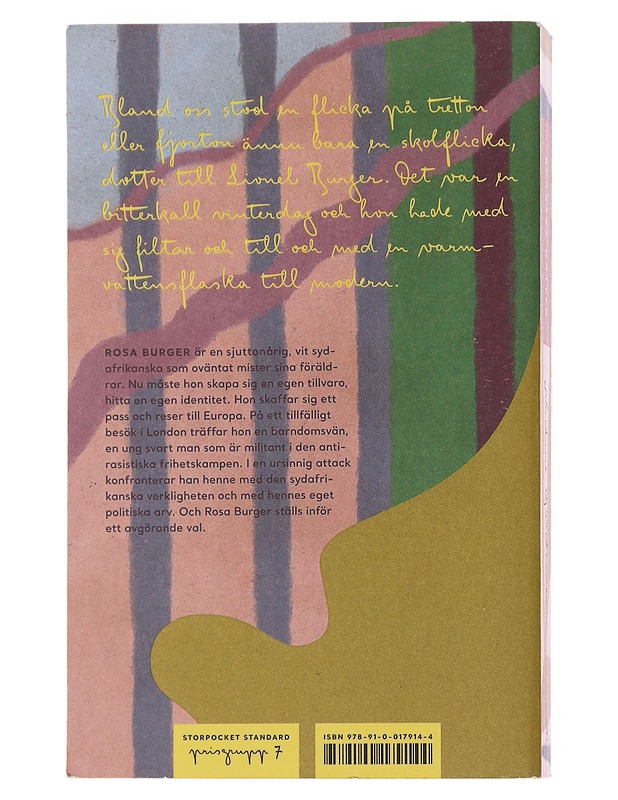 Bland oss stod en flicka på tretton
eller fjorton ännu bara en skolflicka,
dotter till Lionel Burger. Det var en
bitterkall vinterdag och hon hade med
sig filtar och till och med en varm-
vattensflaska till modern.
ROSA BURGER är en sjuttonårig, vit syd-
afrikanska som oväntat mister sina föräld-
rar. Nu måste hon skapa sig en egen tillvaro,
hitta en egen identitet. Hon skaffar sig ett
pass och reser till Europa. På ett tillfälligt
besök i London träffar hon en barndomsvän,
en ung svart man som är militant i den anti-
rasistiska frihetskampen. I en ursinnig attack
konfronterar han henne med den sydafri-
kanska verkligheten och med hennes eget
politiska arv. Och Rosa Burger ställs inför
ett avgörande val.
STORPOCKET STANDARD
prisgrupp 7
ISBN 978-91-0-017914-4